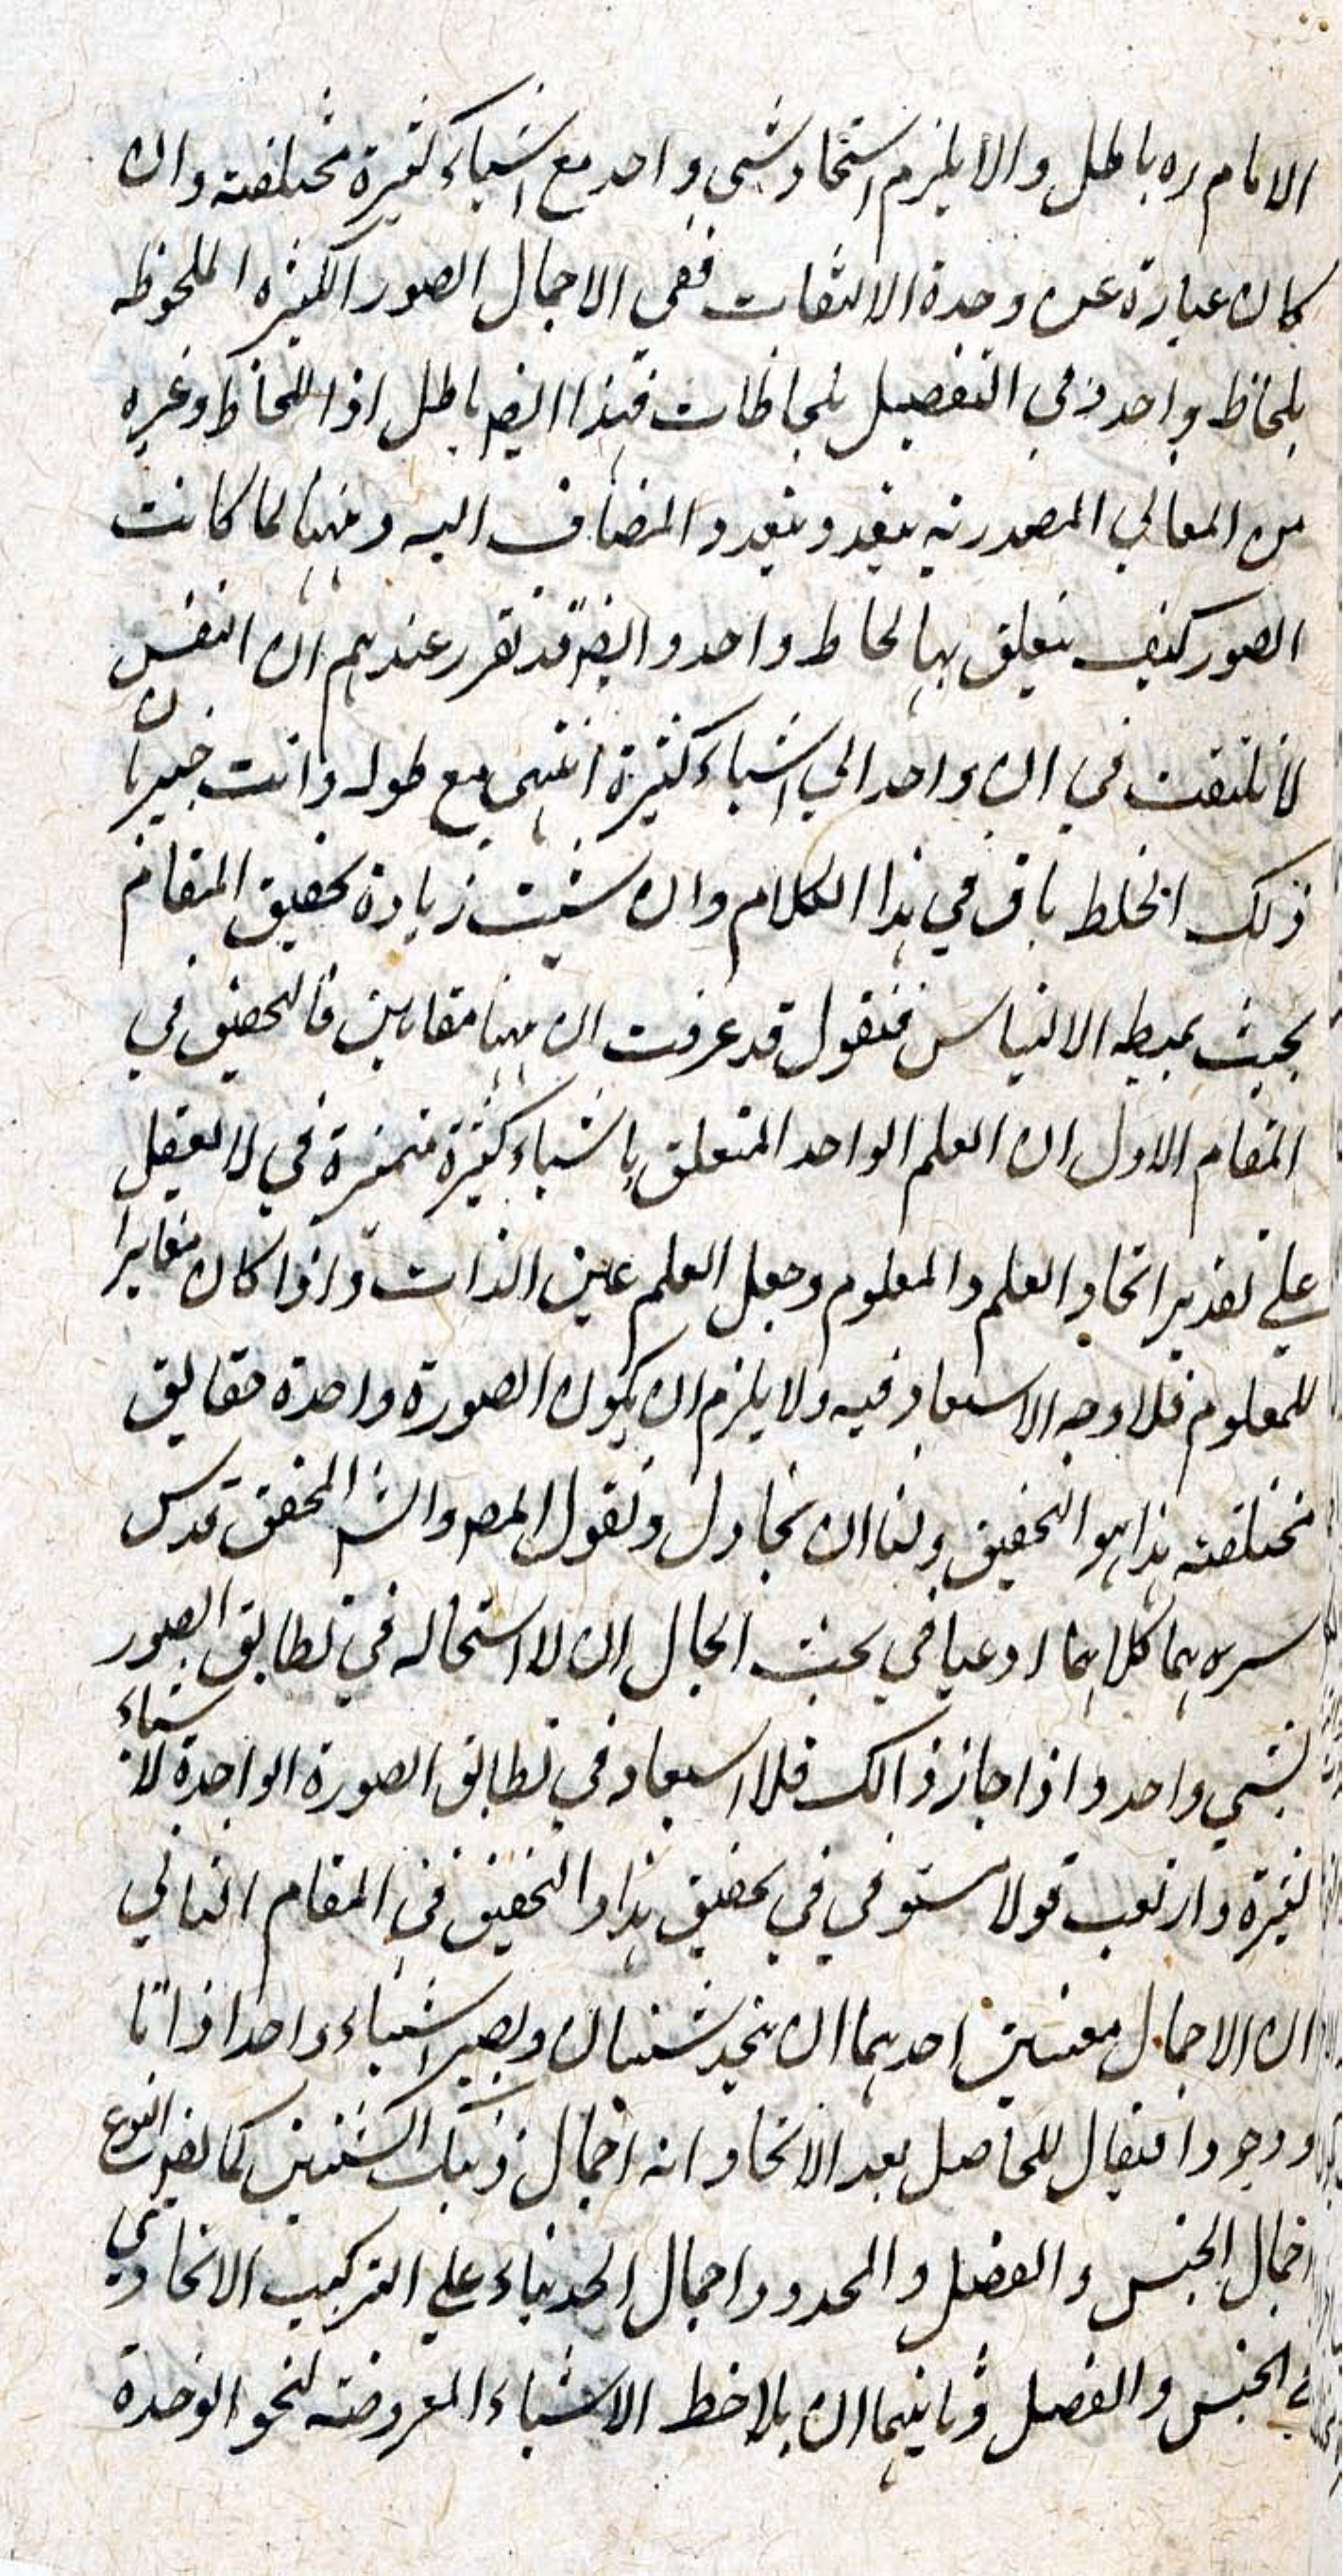 الامام ره باطل والا يلزم استحاد شي واحد مع اشياء كثيرة مختلفة وان
كان عبارة عن وحدة الالتفات ففي الاجمال الصور الكثيره الملحوظه
بلحاظ واحد وفي التفصيل بلحاظات فهذا ايضا باطل اذ اللحاظ وغيره
من المعاني المصدريه يتعدد بتعدد المضاف اليه وههنا لما كانت
الصور كيف يتعلق بها لحاظ واحد وايضا قد تقرر عندهم ان النفس
لا تلتفت في ان واحد الي اشياء كثيرة انتهي مع طوله وانت خبير بان
ذلك الخلط باق في هذا الكلام وان شئت زيادة تحقيق المقام
بحيث يميط الالتباس فنقول قد عرفت ان ههنا مقامين فالتحقيق في
المقام الاول ان العلم الواحد المتعلق باشياء كثيرة متميزة في لا يعقل
علي تقدير اتحاد العلم والمعلوم وجعل العلم عين الذات واذا كان مغايرا
للمعلوم فلا وجه الاستبعاد فيه ولا يلزم ان يكون الصورة واحدة حقايق
مختلفه هذا هو التحقيق ولنا ان نجادل ونقول المص والش المحقق قدس
سرهما كلاهما ادعيا في بحث الحال ان لا استحاله في تطابق الصور
لشي واحد واذا جاز ذالك فلا استبعاد في تطابق الصورة الواحدة لاشياء
كثيرة وارتقب قولا ستوفي في تحقيق هذا والتحقيق في المقام الثاني
ان الاجمال معنيين احدهما ان يتحد شيئان ويصير اشياء واحدا ذاتا
ووجودا فيقال للحاصل بعد الاتحاد انه اجمال ذينك الشيئين كما يقال النوع
اجمال الجنس والفصل والمحدود اجمال الحد بناء علي التركيب الاتحادي
في الجنس والفصل وثانيهما ان يلاحظ الاشياء المعروضة لنحو الوحدة